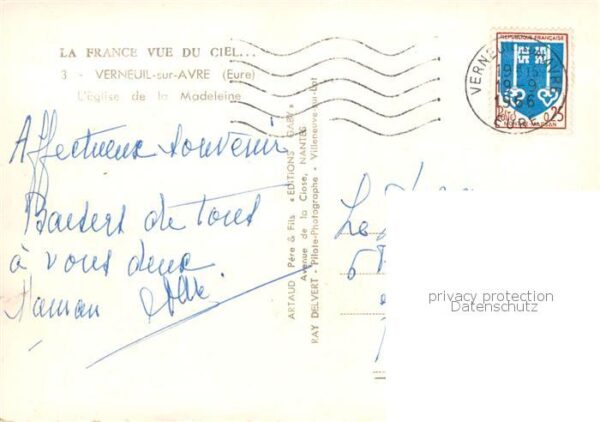 LA FRANCE VUE DU CIEL...
3 - VERNEUIL-sur-AVRE (Eure)
L'Église de la Madeleine
Affectueux souvenir
Baisers de tous
à vous deux
Maman
ARTAUD Père & Fils «EDITIONS GABY»
Avenue de la Close, NANTES
RAY DELVERT - Pilote-Photographe - Villeneuve-sur-Lot
REPUBLIQUE FRANÇAISE
0,25
MONT-DE-MARSAN
VERNEUIL
1966
EURE
Le
5
privacy protection
Datenschutz